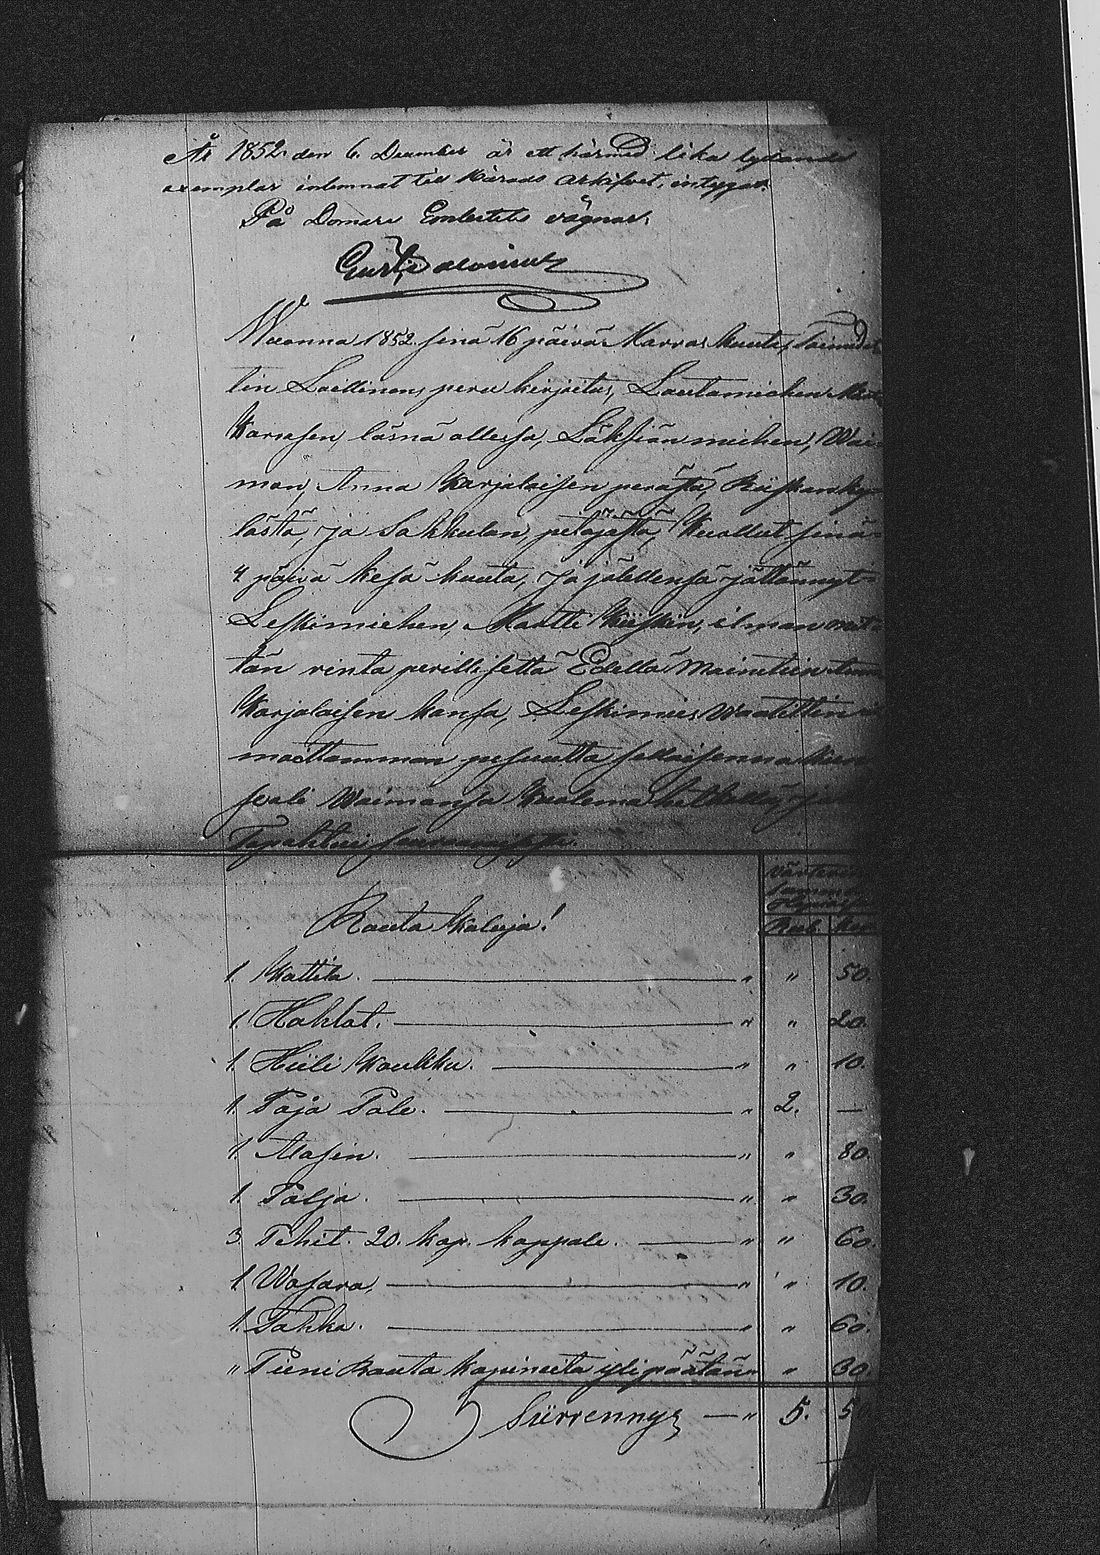 År 1852 den 6. December är ett härmed lika lydande
exemplar inlemnat till Härads Arkifvet, intygar.
På Domare Embetets vägnar.
Wuonna 1852 sinä 16 päivä Marras kuuta, Toimitet
tiin Laillinen peru kirjoitus, Lautamiehen
Karvasen läsnä ollessa, Läksiän miehen, Wai
mon, Anna Karjalaisen perästä, Kiiskan ky
lästä, ja Sakkulan pitäjästä, Kuollut sinä
4 päivä Kesä kuuta, ja jälellensä jättännyt
Leskimiehen, Martti Kiiskin, ilman mitä
tän rinta perillisettä Edellä Mainitun
Karjalaisen kansa, Leskimies Waadittin
moittamman pesuutta sellaisenna kun
se oli Waimonsa Kuolema hetkellä, ja
Tapahtui seuraavasti.
Rauta Kaluja!
Rub. Kop.
1. Kattila. " " 50.
1. Hahlat. " " 20.
1. Hiili Koukku. " " 10.
1. Paja Pale. " 2. —
1. Alasin. " " 80.
1. Palja. " " 30.
3 Pehit. 20. kop. kappale. " " 60.
1 Wasara, " " 10.
1. Tahka. " " 60.
" Pieni Rauta kapineita ylipäätän " " 30.
Siirrennys — " 5. 50